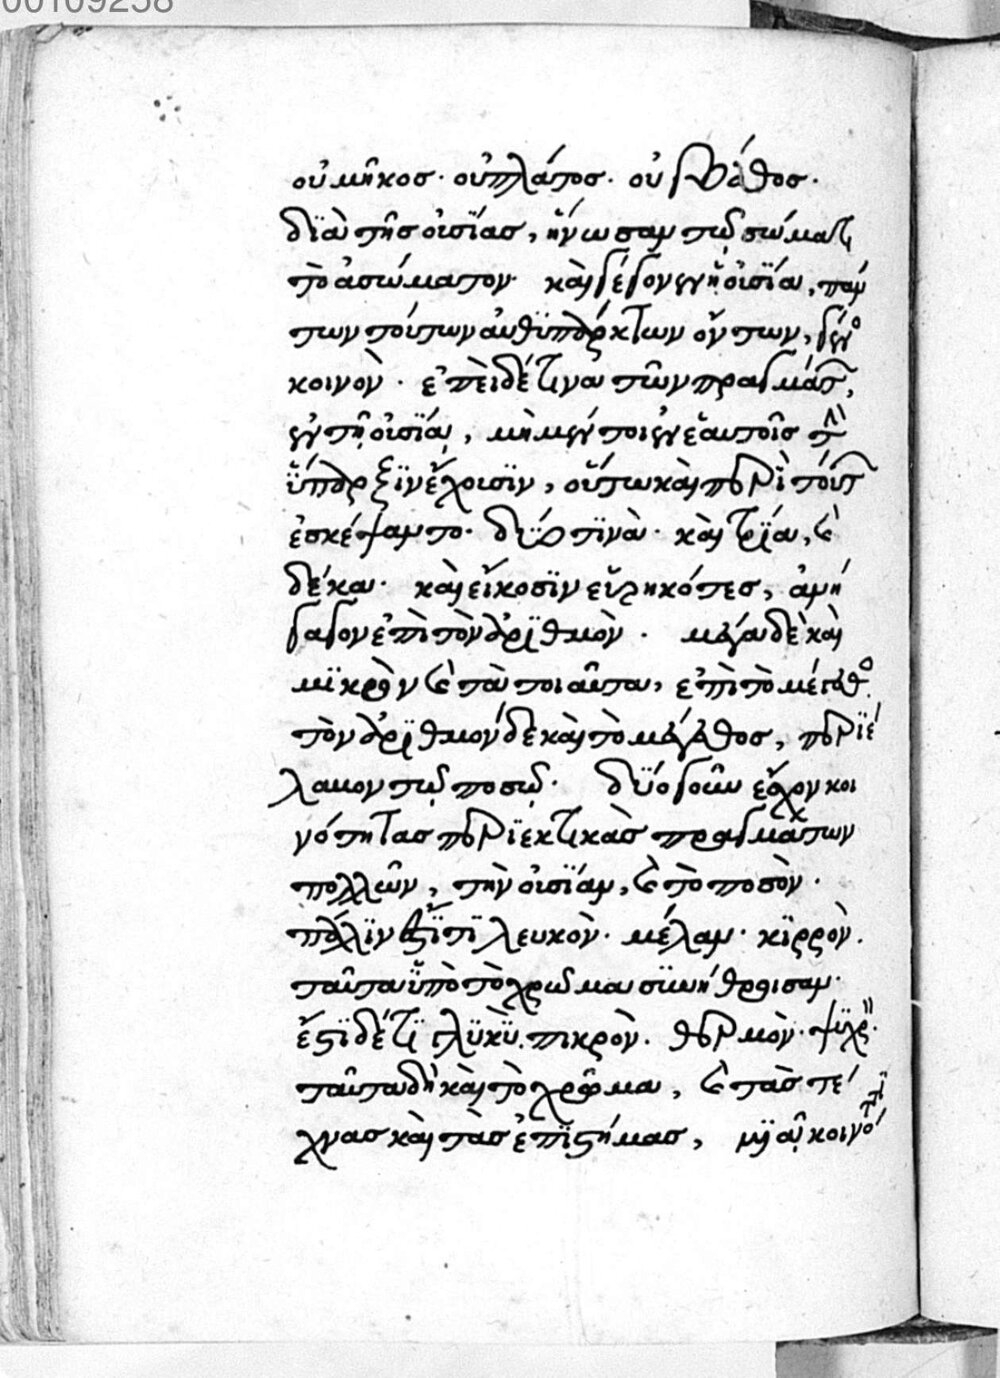 00109258
οὐ μῆκος · οὐ πλάτος · οὐ βάθος ·
διὰ τῆς οὐσίας, ἥνωσαν τῷ σώματι
τὸ ἀσώματον · καὶ γέγονεν ἡ οὐσία, πάν
των τούτων ἀνθυπάρκτων ὄντων, γέν
κοινὸν · ἐπεὶ δέ τινα τῶν πραγμάτων,
ἐν τῇ οὐσίᾳ, μὴ μέντοι ἐν ἑαυτοῖς τὴν
ὕπαρξιν ἔχουσιν, οὕτω καὶ περὶ τούτων
ἐσκέψαντο · δύο τινὰ · καὶ τρία, καὶ
δέκα · καὶ εἴκοσιν εὑρηκότες, ἀνή
γαγον ἐπὶ τὸν ἀριθμὸν · μέγα δὲ καὶ
μικρὸν καὶ τὰ τοιαῦτα, ἐπὶ τὸ μέγεθος
τὸν ἀριθμὸν δὲ καὶ τὸ μέγεθος, περιέ
λαβον τῷ ποσῷ · δύο γοῦν εὗρον κοι
νότητας περιεκτικὰς πραγμάτων
πολλῶν, τὴν οὐσίαν, καὶ τὸ ποσὸν ·
πάλιν ἐστί τι λευκὸν · μέλαν · κιρρὸν ·
ταῦτα ὑπὸ τὸ χρῶμα συνήθροισαν ·
ἔστι δέ τι γλυκὺ · πικρὸν · θερμὸν · ψυχρ ·
ταῦτα δὴ καὶ τὸ χρῶμα, καὶ τὰς τέ
χνας καὶ τὰς ἐπιστήμας, μιᾷ κοινότητι